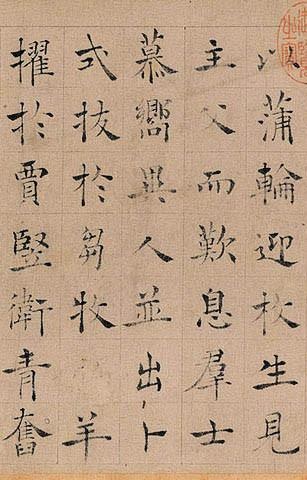 以蒲輪迎枚生見
主父而歎息羣士
慕嚮異人並出卜
式拔於芻牧 羊
擢於賈豎衛青奮